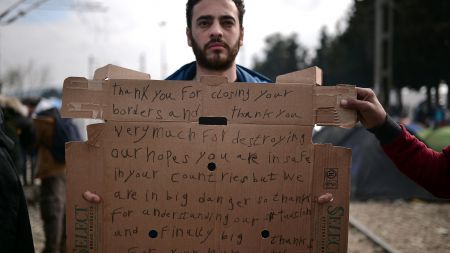 thank you For closing your
borders and thank you
very much For destroying
our hopes you are in safe
in your countries but we
are in big danger so thanks
For understanding our
and Finally big thanks
SELECT
SELECT